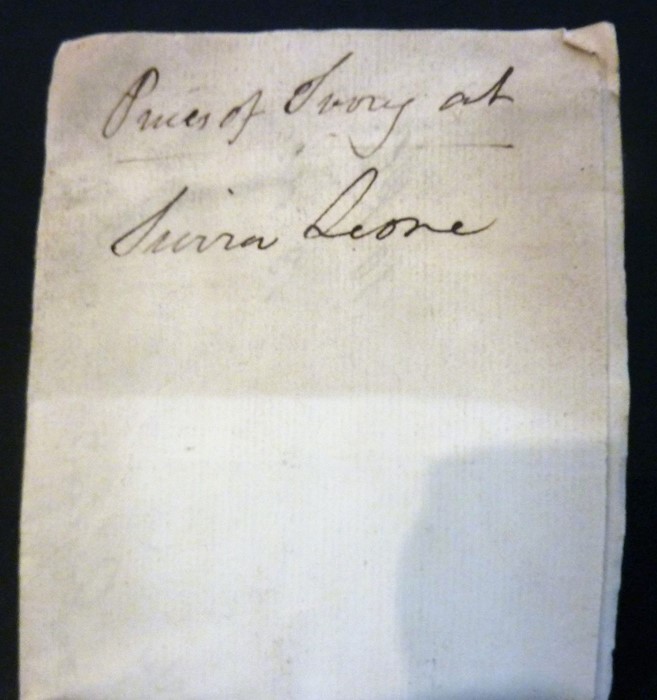 Prices of Ivory at
Sierra Leone